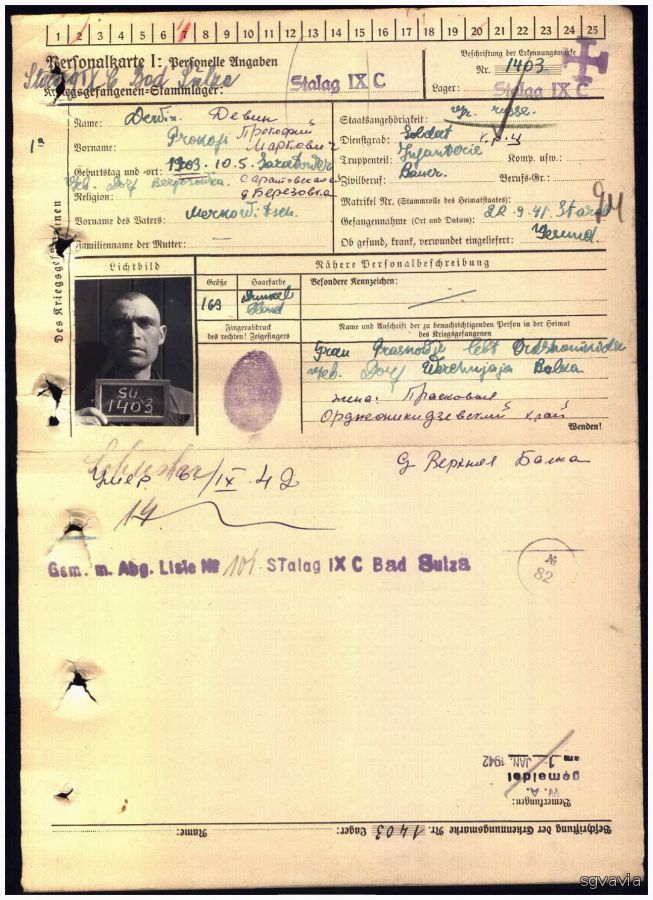 1 2 3 4 5 6 7 8 9 10 11 12 13 14 15 16 17 18 19 20 21 22 23 24 25
Personalkarte I: Personelle Angaben
Stalag IX C Bad Sulza
Kriegsgefangenen-Stammlager:
Stalag IX C
Beschriftung der Erkennungsmarke
Nr. 1403
Lager: Stalag IX C
Des Kriegsgefangenen
Name: Dewin Девин
Vorname: Prokofi Прокофий Маркович
Geburtstag und -ort: 1903. 10.5. Саратовская
Religion: д Березовка
Vorname des Vaters:
Familienname der Mutter: —
Staatsangehörigkeit: russe.
Dienstgrad: Soldat
Truppenteil: Infanterie Komp. usw.:
Zivilberuf: Bauer. Berufs-Gr.:
Matrikel Nr. (Stammrolle des Heimatstaates):
Gefangennahme (Ort und Datum): 9.41.
Ob gesund, krank, verwundet eingeliefert: Gesund
Lichtbild
SU
1403
Größe
169
Haarfarbe
Dunkel
blond
Fingerabdruck
des rechten! Zeigefingers
Nähere Personalbeschreibung
Besondere Kennzeichen:
Name und Anschrift der zu benachrichtigenden Person in der Heimat
des Kriegsgefangenen
Frau
Geb. Dorf Werchnjaja Balka.
жена: Прасковья
Орджоникидзевский край
Wenden!
д Верхняя Балка
умер 6/IX.42
14
Gem. m. Abg. Liste Nr 101 STalag IX C Bad Sulza
№
82
am 1. JAN. 1942
gemeldet
W. A.
Bemerkungen:
Beschriftung der Erkennungsmarke Nr. 1403 Lager: Name:
sgvavia